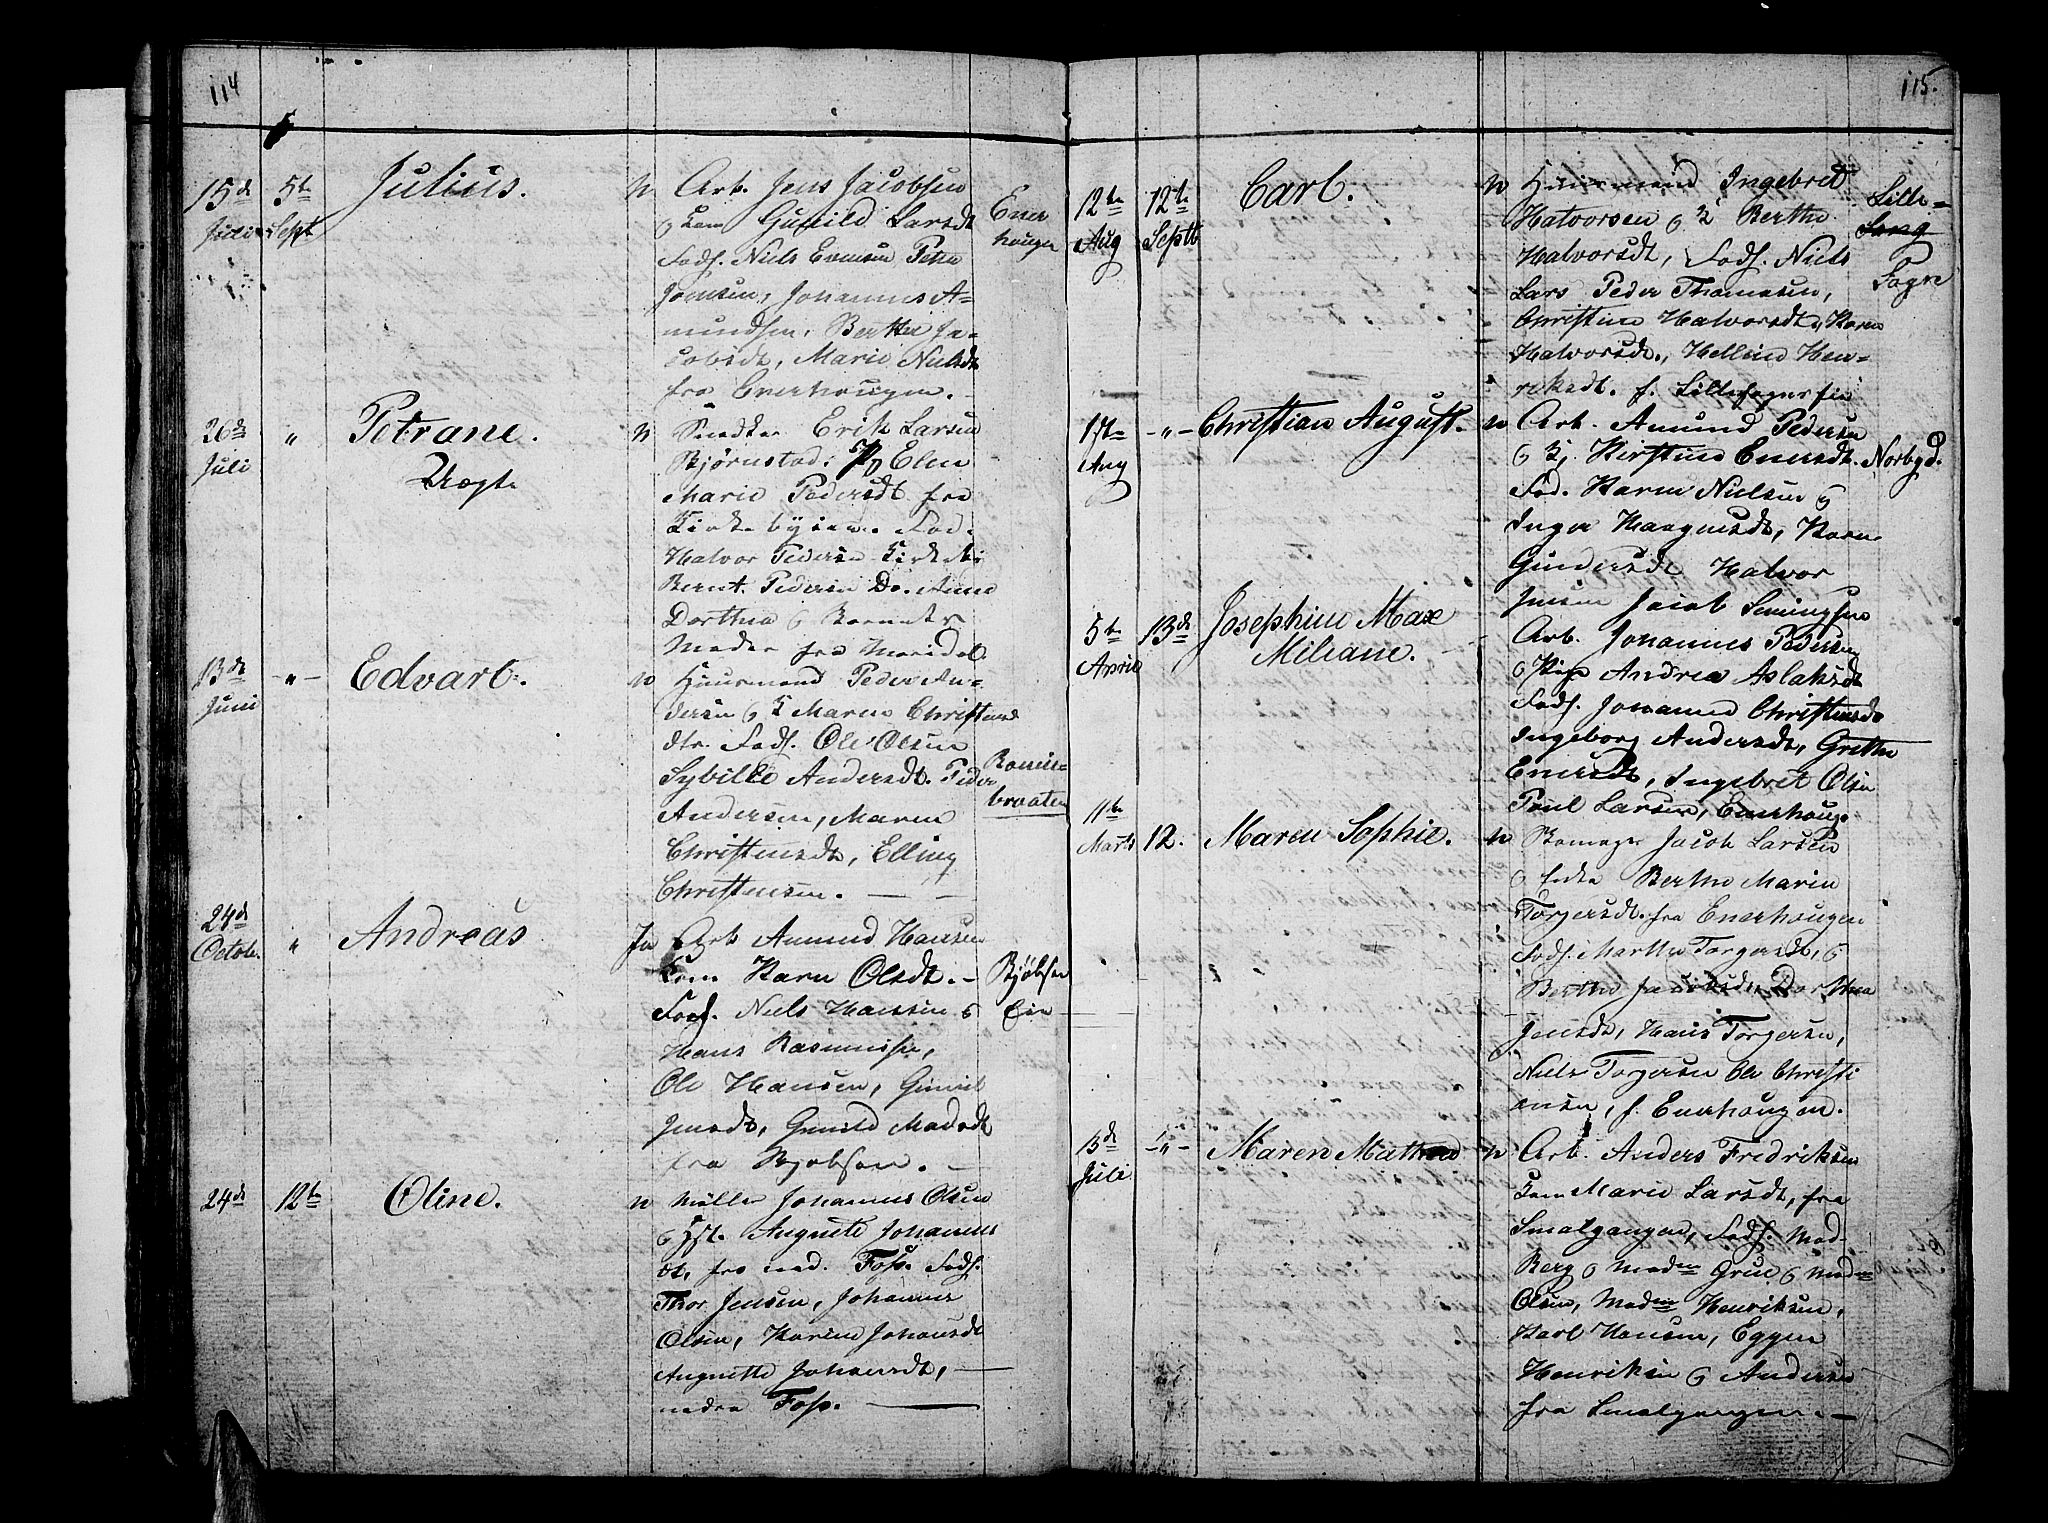 114
15de
Juli
5te
Sept
Julius.
n
Arb. Jens Jacobsen
o Kone Gunild Larsdt
Fads. Niels Evensen Peter
Jonsen, Johannes A-
mundsen, Berthe Ja-
cobsdt, Marie Nielsdt
fra Enerhougen.
Ener
hougen
26de
Juli
"
Petrane.
Uægte
n
Snedker Erik Larsen
Bjørnstad. P/ Elen
Marie Pedersdt fra
Kirkebyien. Fad.
Halvor Pedersen Kirkebÿ
Bernt Pedersen Do. Anne
Dorthea o Barnets
Moder fra Maridal.
13de
Juni
-"-
Edvart.
n
Huusmand Peder An-
dersen o K Maren Christens
dtr. Fads. Ole Olsen
Sybille Andersdt. Peder
Andersen, Maren
Christensdt, Elling
Christensen.
braaten
24de
Octobr.
"
Andreas
Ja
Arb Amund Hansen
Kone Karen Olsdt.
Fads. Niels Hansen o
Hans Rasmussen,
Ole Hansen, Gunild
Jensdt, Gunild Madsdt
fra Bjøbsen.
Bjøbsen
Eie
24de
12te
Oline.
n
Møller Johannes Olsen
o Hst. Augusta Johannes
dt, fra ned. Foss. Fads.
Thor Jensen, Johannes
Olsen, Karine Johansdt
Augusta Johansdt,
nedre Foss.
115.
12te
Aug
12te
Septb
Carl.
n
Huusmand Ingebret
Halvorsen o K Berthe
Halvorsdt, Fads. Niels
Lars Peder Thomasen,
Christine Halvorsdt, Karen
Halvorsdt., Helline Hen-
riksdt. f. Lille
Lille-
Sogn
1ste
Aug
-"-
Christian August.
n
Arb. Amund Pedersen
o K. Kirstine Enersdt.
Fad. Karen Nielsen o
Inger Haagensdt, Karen
Gundersdt Halvor
Jensen Jacob Simingsen
Norbyd.
5te
April
13de
Josephine Max
Miliane.
Arb. Johannes Pedersen
o Pige Andrea Aslaksdt
Fads. Johanne Christensdt
Ingeborg Andersdt, Grethe
Enersdt, Ingebret Olsen
Poul Larsen, Enerhoug.
11te
Marts
12.
Maren Sophie.
n
Jacob Larsen
o Enke Berthe Marie
Torgersdt. fra Enerhougen
Fads. Marthe Torgersdt, o
Berthe Jacobsdt, Dorthea
Jensdt, Hans Torgersen,
Niels Torgersen Ole Christi
ansen, f. Enerhougen.
13de
Juli
-"-
Maren Mathea
n
Arb. Anders Fredriksen
Kone Marie Larsdt, fra
Smalgangen, Fads. Mad.
Berg o Madm Grue o Madm
Olsen, Madm Henriksen,
Karl Hansen, Eggen
Henriksen o Andersen
fra Smalgangen.